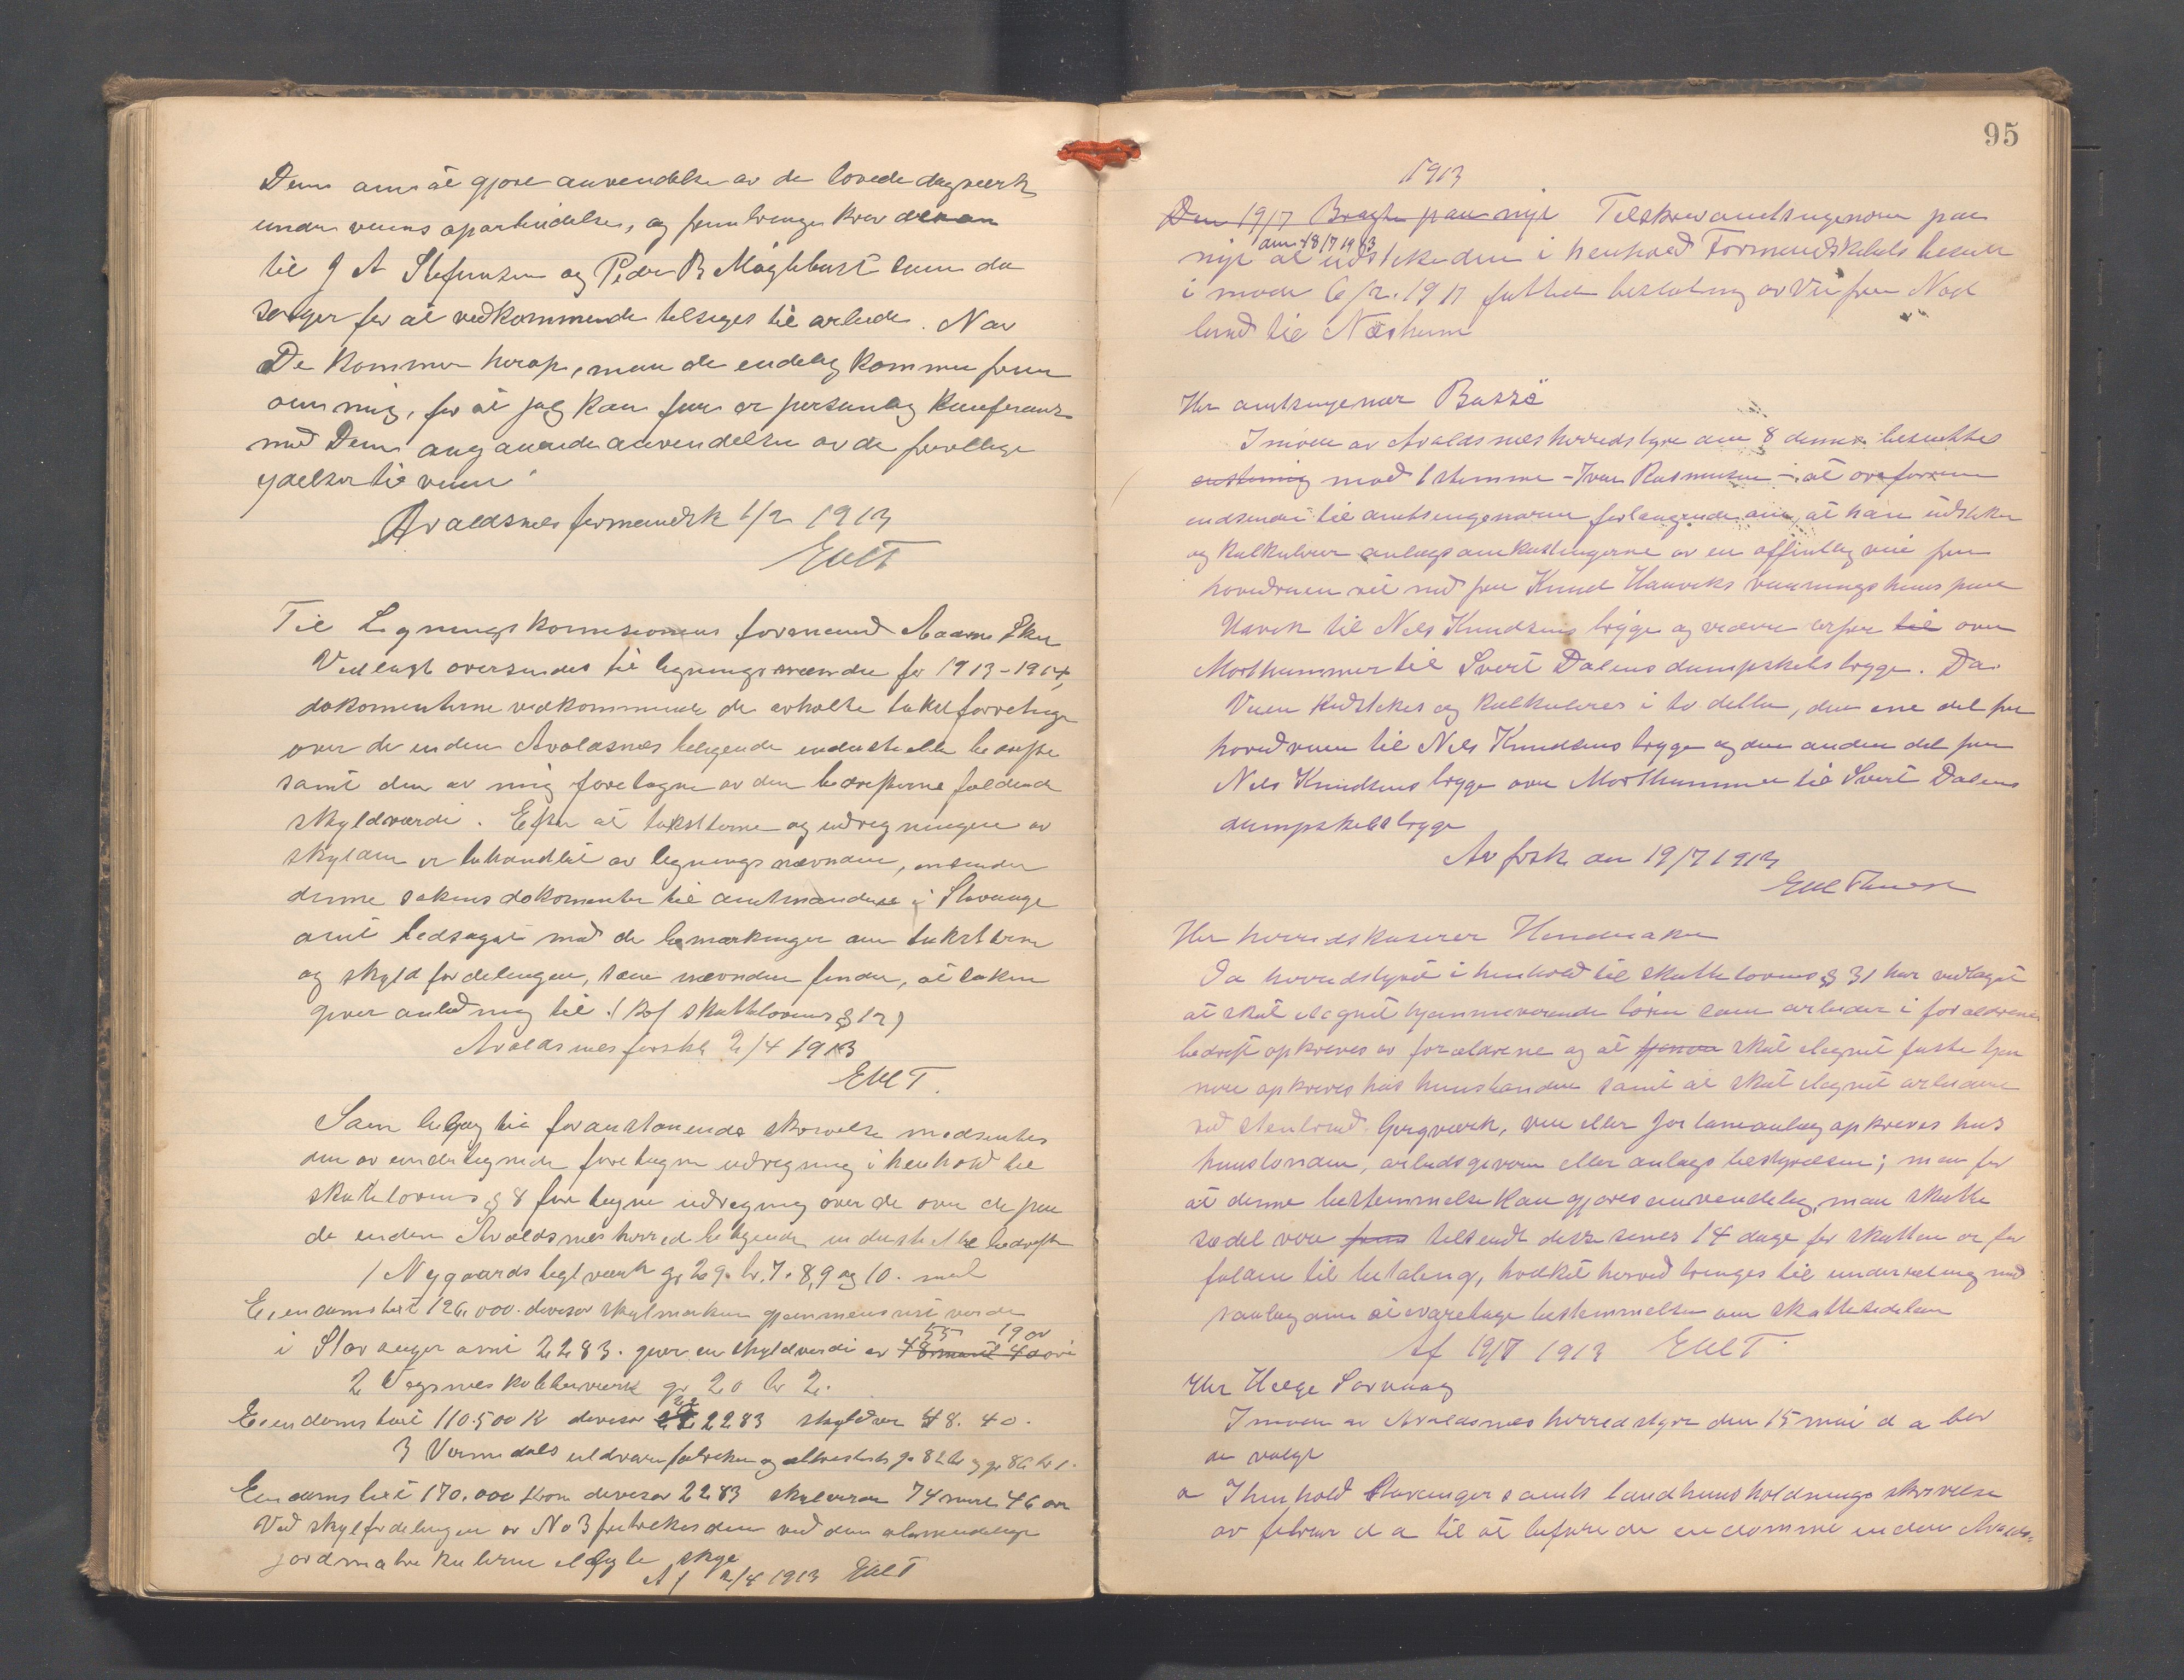 Dem om at gjøre anvendelse av de lovede dagverk
under veiens oparbeidelse, og frembringe krav derom
til J A Stefensen og Peder B Møglebust som da
sørger for at vedkommende tilsiges til arbeide. Naar
De kommer herop, maa de endelig komme frem
om mig, for at jeg kan faa en personlig konferanse
med Dem angaaende anvendelsen av de frivillige
ydelser til veien
Avaldsnes formandsk 1/2 1913
EMT
Til Ligningskommisionens formand Aadne Eike
Vedlagt oversendes til ligningsnævnden for 1913-1914,
dokomenterne vedkommende de avholte takstforretninger
over de inden Avaldsnes beligende industrielle bedrifter
samt den av mig foretagne av den bedrifterne faldende
skyldværdi. Efter at taksterne og utregningen av
skylden er behandlet av ligningsnævnden, insender
denne sakens dokomenter til amtmanden i Stavanger
amt ledsaget med de bemærkninger om taksterne
og skyldfordelingen, som nævnden finder, at saken
giver anledning til. (Kof skattelovens § 12)
Avaldsnes forskb 2/4 1913
EMT.
Som bilag til foranstaaende skrivelse medsendes
den av undertegnede foretagne udregning i henhold til
skattelovens § 8 foretagne udregning over de over de paa
de inden Avaldsnes herred beligende industrielle bedrifter
1 Nygaards teglværk gr 29. br. 7. 8, 9 og 10. med
Eiendomstakst 126,000. divisor skylmarken gjennemsnit verdi
55 19 øv
i Stavanger amt 2283. giver en skyldverdi av 48 mark 40 øre
2 Vegsnes kobberværk gr 20 br 2.
Eiendomstakst 110.500 K divisor 2283 skyldver 48. 40.
3 Vormedals uldvarefabriken og gr 82 br og gr 86 br 1.
Eiendomstakst 170.000 kron divisor 2283 skylverdi 74 mark 46 øre
Ved skylfordelingen av No 3 fratrekkes den ved den almindelige
jordmatrikulerne skyl
Af 2/4 1913 EMT
95
1913
Den 19/7 Bragte paa nyt Tilskrev amtsingeniøren paa
den 18/7 1913
nyt at udstikke den i henhold Formandskabets beslut
i møde 6/2. 1911 fattede beslutning av Vei fra Nød
lund til Næsheim
Hr amtsingeniør Bassø
I møde av Avaldsnes herredstyre den 8 dennes besluttes
enstemig mod 1 stemme - Iver Rasmussen - at
indsende til amtsingeniøren forlangende om, at han udstikker
og kalkulerer anlægsomkostningerne av en offentlig vei fra
hovedveien ret ned fra Knud Haaviks vaaningshus paa
Haavik til Nels Knudsens brygge og videre derfra til over
Morthammer til Svert Dalens dampskibsbrygge. Da
Veien udstikes og kalkuleres i to deller, den ene del fra
hovedveien til Nels Knudsens brygge og den anden del fra
Nels Knudsens brygge over Morthammer til Svert Dalens
dampskibsbrygge
Av forsk den 19/7 1913
EM Thuesen
Hr herredskaserer Hinderaker
Da herredstyret i henhold til skattelovens § 31 har vedtaget
at skat ilagnet hjemmeværende børn som arbeider i forældrenes
bedrift opkræves av forældrene og at tjenere skat ilagnet faste tjen
nere opkræves hos husbonden samt at skat ilagnet arbeidere
ved stenbrud. bergværk, vei eller jernbaneanlæg opkræves hos
husbonden, arbeidsgiveren eller anlægs bestyrelsen; men for
at denne bestemmelse kan gjøres anvendelig, maa skatte
sedel være tilsendt disse senes 14 dage før skatten er for
falden til betaling, hvilket herved bringes til underretning med
paalæg om at ivaretage bestemmelsen om skattesedelen
Af 19/7 1913 EMT.
Hr Helge Sørvaag
I møde av Avaldsnes herredstyre den 15 mai d a blev
de valgt
a I henhold Stavanger amts landhusholdnings skrivelse
av februar d a til at befare de eiendomme inden Avalds-